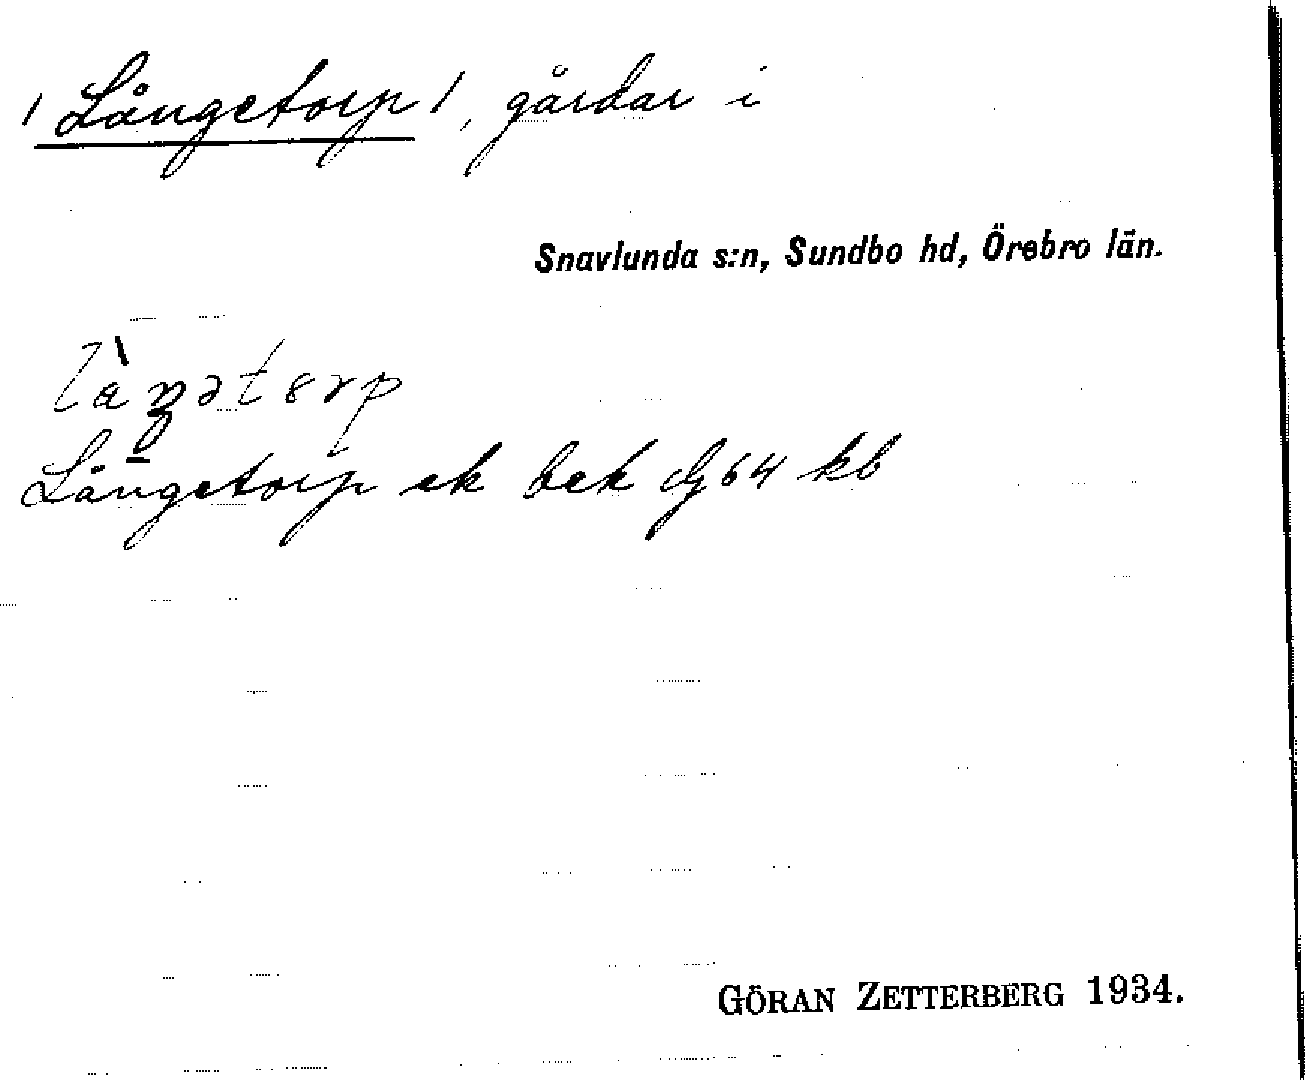 / Långetorp /, gårdar i
Snavlunda s:n, Sundbo hd, Örebro län.
Långetorp ek bek dj 64 kb
GÖRAN ZETTERBERG 1934.